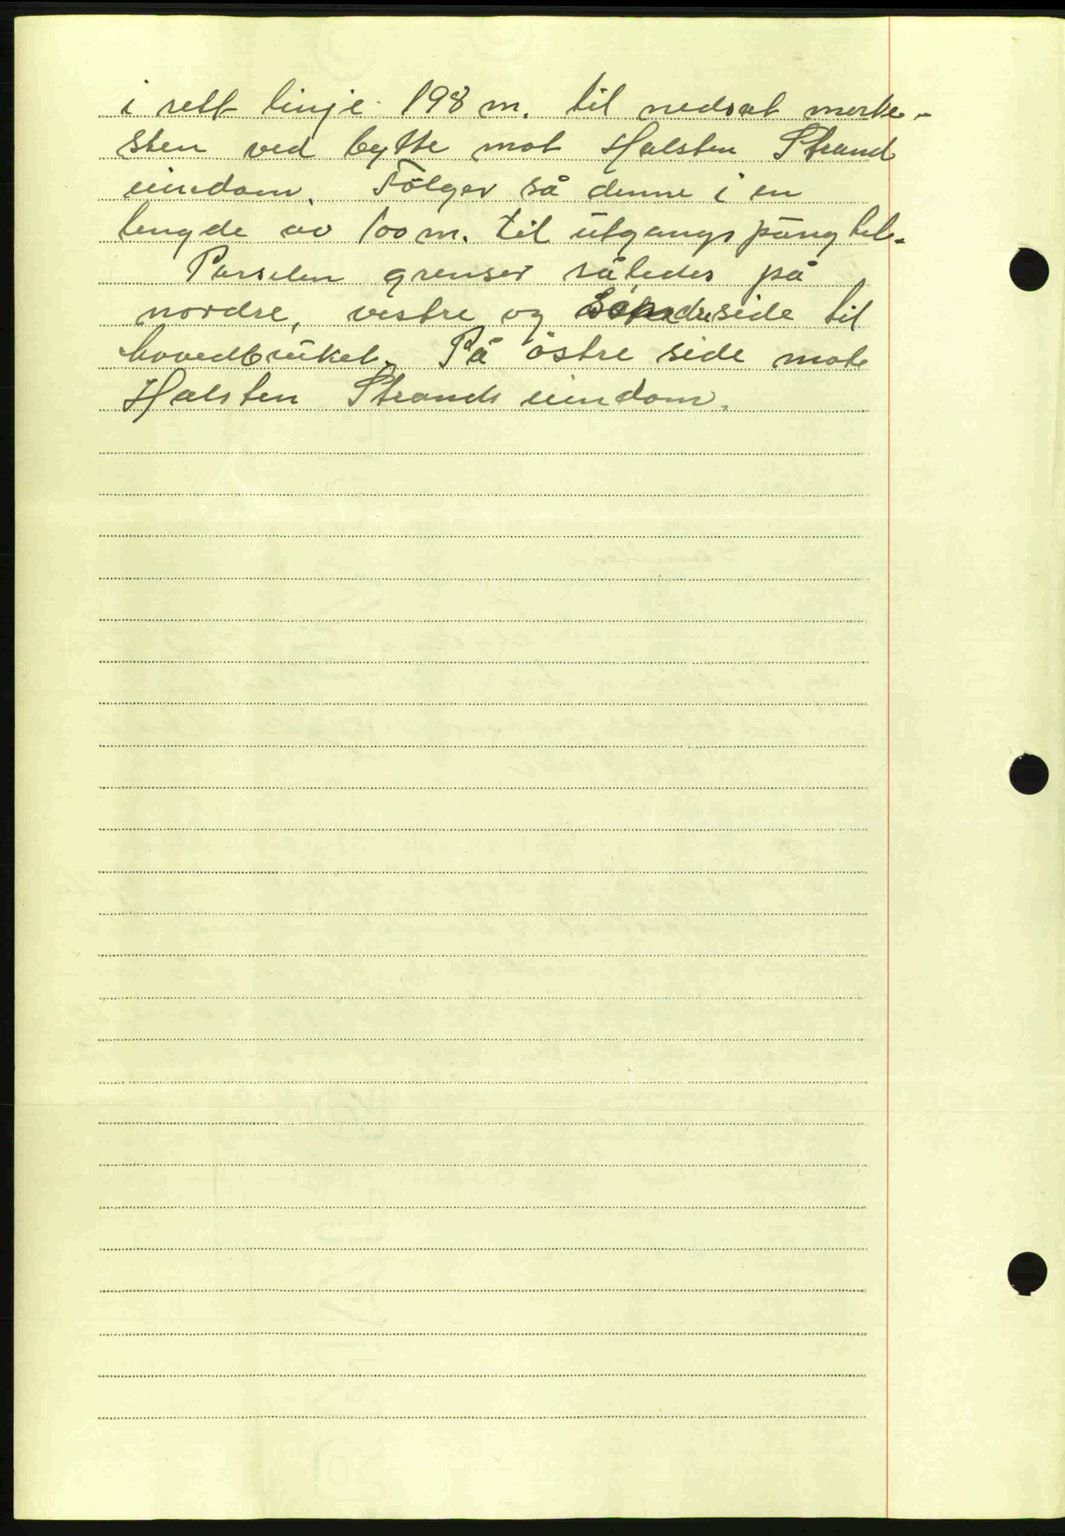 i rett linje 198 m. til nedsat merke-
sten ved bytte mot Halsten Strand
eiendom. Følger så denne i en
lengde av 100 m. til utgangspunktet.
Parselen grenser således på
nordre, vestre og søndre side til
hovedbruket. På østre side mote
Halsten Strands eiendom.